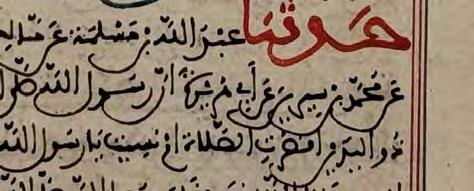 حدثنا عبد الله بن مسلمة عن خالد
عن محمد بن سيرين عن أبي هريرة أن رسول الله صلى
ذو اليدين أقصرت الصلاة أم نسيت يا رسول الله